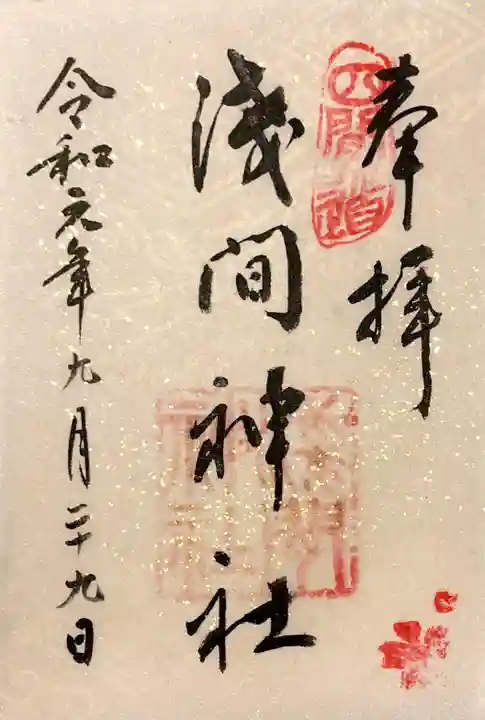 奉拝
四間道
浅間神社
令和元年九月二十九日